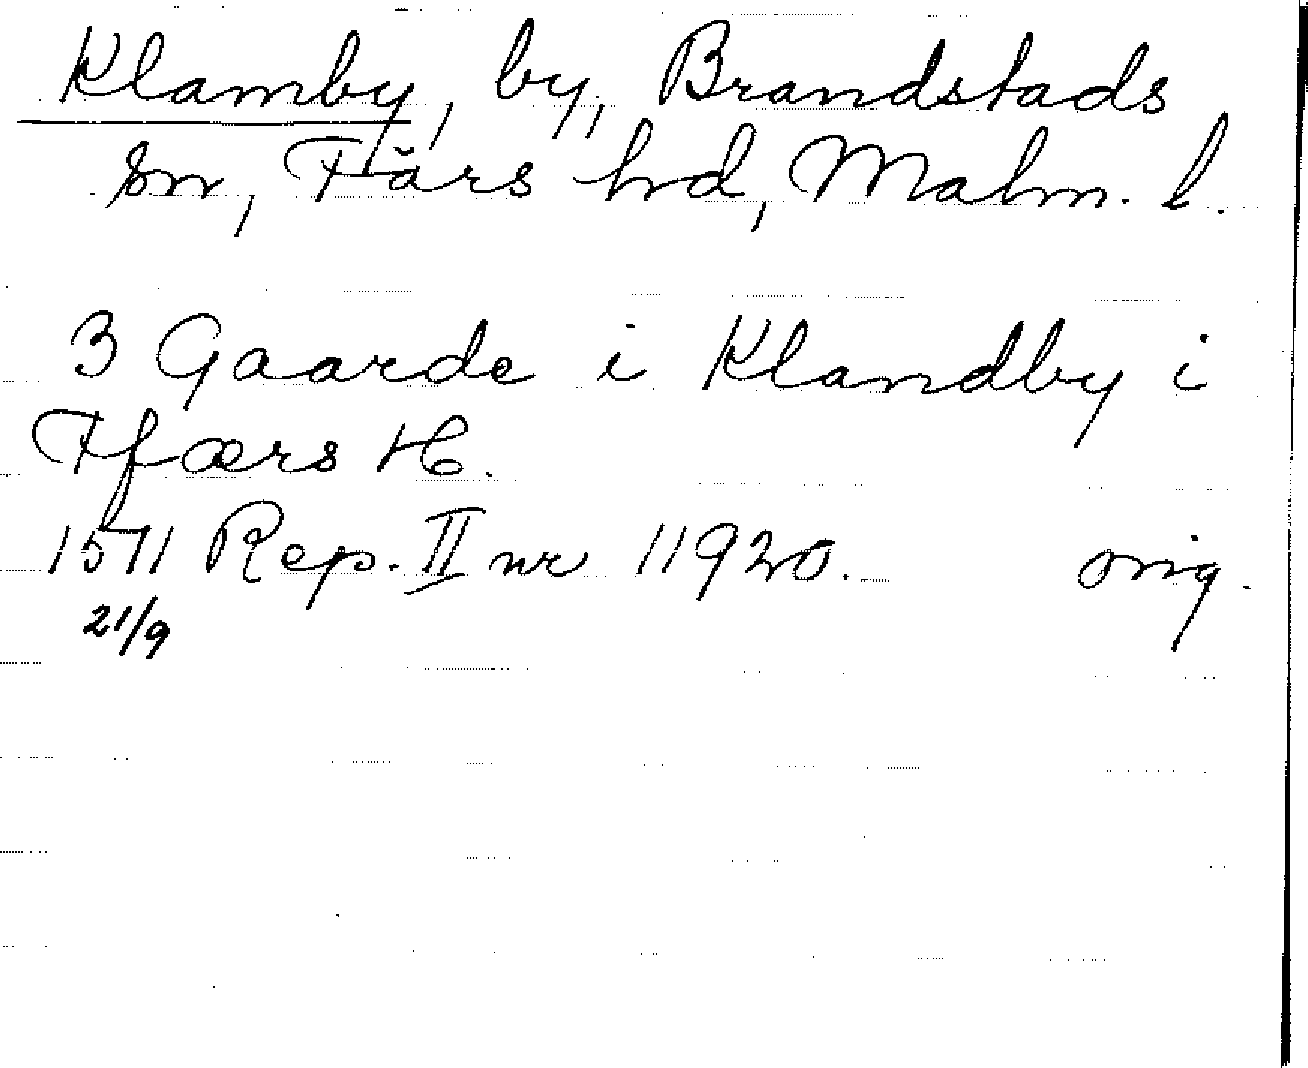 Klamby, by, Brandstads
sn, Färs hd, Malm. l.
3 Gaarde i Klandby i
Ffærs H.
1571 Rep. II nr 11920. orig.
21/9